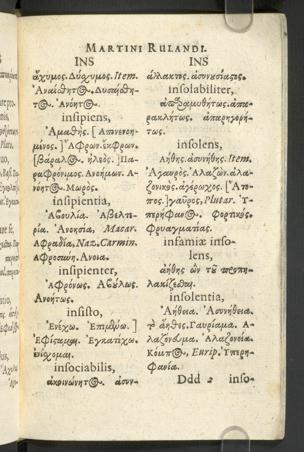 MARTINI RULANDI.
INS
ἄχυμος. Δύσχυμος. Item.
Ἀναίσθητος. Δυσαίσθη-
τος. Ἀνόητος.
insipiens,
Ἀμαθής.
μενος.] Ἄφρων. ἔκφρων.
ἠλεός.] Πα-
ραφρόνιμος. Ἀνοήμων. Ἀ-
νόητος. Μωρός.
insipientia,
Ἀβουλία. Ἀβελτε-
ρία. Ἀνοησία, Macar.
Ἀφραδία, Naz. Carmin.
Ἀφροσύνη. Ἄνοια.
insipienter,
Ἀφρόνως. Ἀβούλως.
Ἀνοήτως.
insisto,
Ἐνέχω. Ἐπιμένω.]
Ἐφίσταμαι. Ἐγκατίχω.
ἐνίχομαι.
insociabilis,
ἀκοινώνητος. ἀσυν-
INS
ἄλλακτος. ἀσυνουσίαστος.
insolabiliter,
ἀπαραμυθήτως. ἀπα-
ρακλήτως. ἀπαρηγορή-
τως.
insolens,
Ἀήθης. ἀσυνήθης. Item.
Ἀγαυρός. Ἀλαζών. ἀλα-
ζονικός. ἀγέρωχος. [Ἄτο-
πος.] γαῦρος, Plutar. Ὑ-
περήφανος. Φορτικός.
Φρυαγματίας.
infamiæ inso-
lens,
ἀήθης ὢν τοῦ προπη-
λακίζεσθαι.
insolentia,
Ἀήθεια. Ἀσυνήθεια.
τὸ ἄηθες. Γαυρίαμα. Ἀ-
λαζόνευμα. Ἀλαζονεία.
Κόμπος, Eurip. Ὑπερη-
φανία.
Ddd 2 inso-